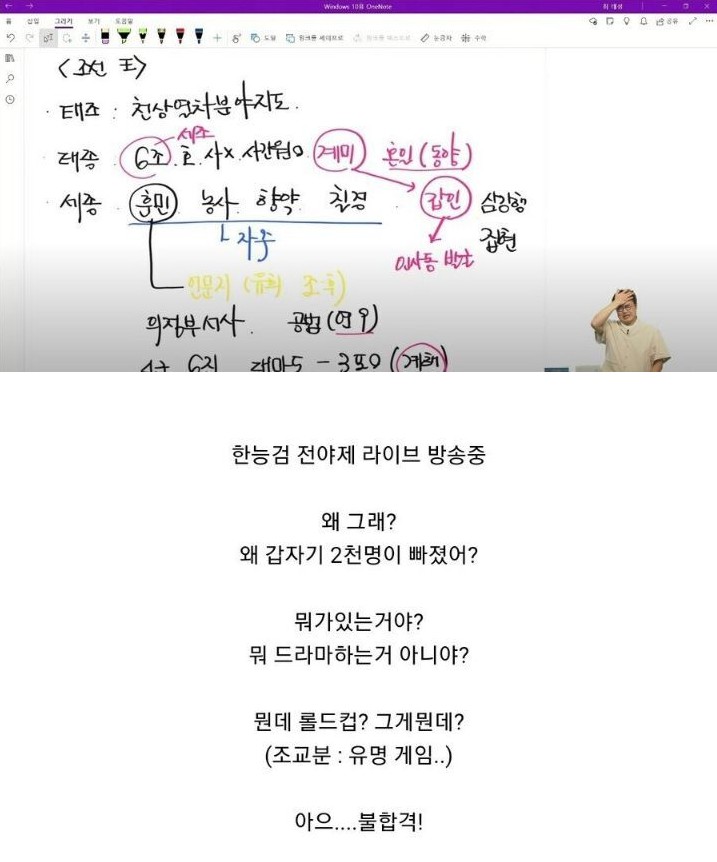 Windows 10용 OneNote
홈 삽입 그리기 보기 도움말
공유
도형 잉크를 셰이프로 잉크를 텍스트로 눈금자 수학
<조선 王>
· 태조 : 천상열차분야지도.
세조
· 태종 6조. 호. 사X. 사간원O 계미 혼인(동양)
· 세종 훈민 농사. 향약 칠정 갑인 삼강행
집현
ㄴ자주
의정부서사. 공법(연9)
6진 대마도 - 3포O (계해)
한능검 전야제 라이브 방송중
왜 그래?
왜 갑자기 2천명이 빠졌어?
뭐가있는거야?
뭐 드라마하는거 아니야?
뭔데 롤드컵? 그게뭔데?
(조교분 : 유명 게임..)
아으....불합격!